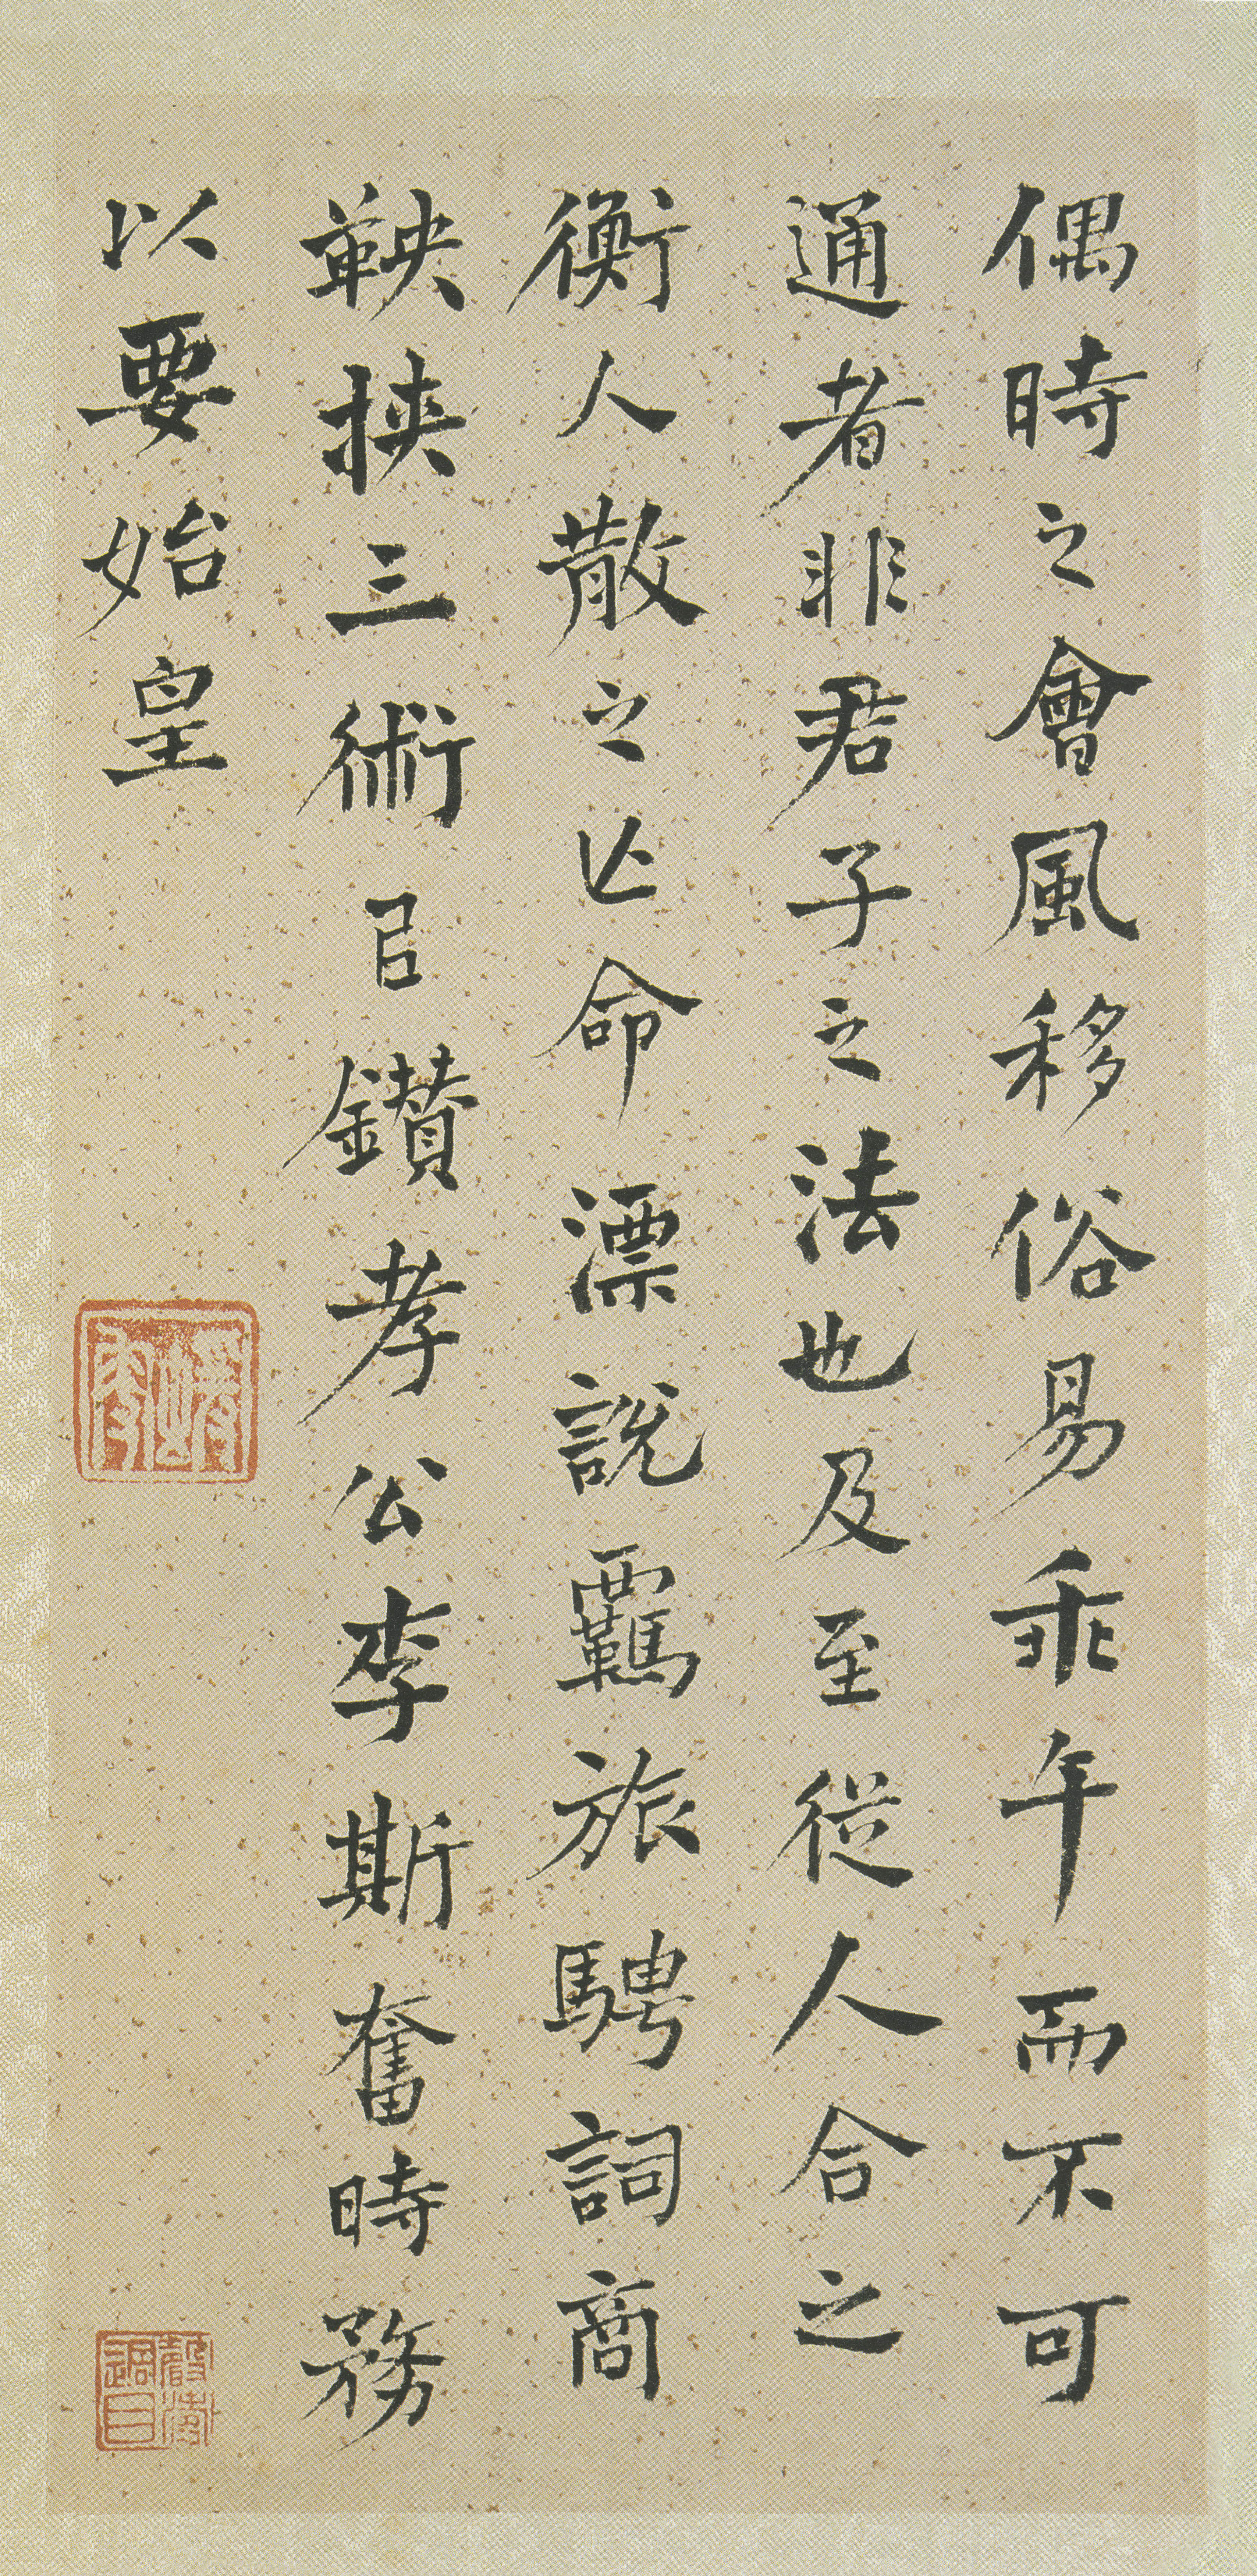 偶時之會風移俗易乖午而不可
通者非君子之法也及至從人合之
衡人散之亡命漂說羈旅騁詞商
鞅挾三術㠯鑽孝公李斯奮時務
以要始皇